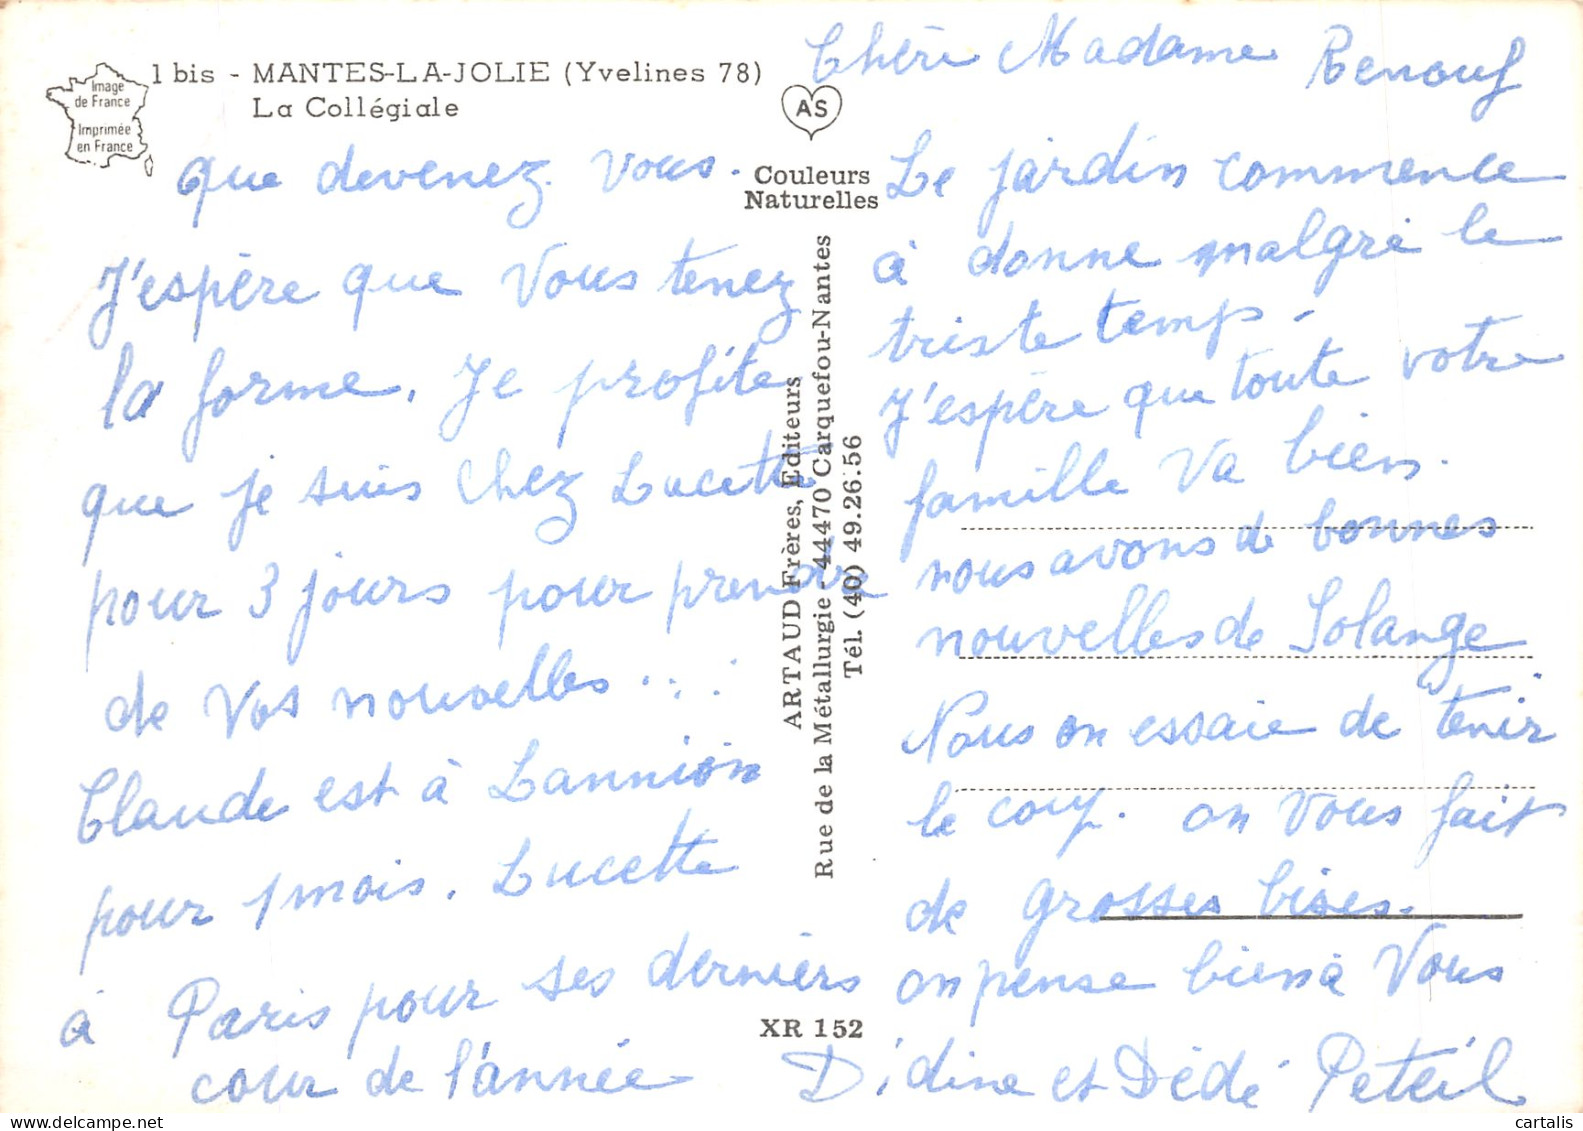 1 bis - MANTES-LA-JOLIE (Yvelines 78)
La Collégiale
Image
de France
Imprimée
en France
AS
Couleurs
Naturelles
ARTAUD Frères, Editeurs
Rue de la Métallurgie - 44470 Carquefou-Nantes
Tél. (40) 49.26.56
XR 152
Chèri Madame Renouf
que devenez. vous.
J'espère que vous tenez
la forme. Je profite
que je suis chez Lucette
pour 3 jours pour prendre
de vos nouvelles...
Claude est à Lannion
pour 1 mois. Lucette
à Paris pour ses derniers
cour de l'année
Le jardin commence
à donne malgré le
triste temp.
J'espère que toute votre
famille va bien.
nous avons de bonnes
nouvelles de Solange
Nous on essaie de tenir
le coup. on vous fait
de grosses bises.
on pense bien à Vous
Didine et Dédé Peteil
cartalis